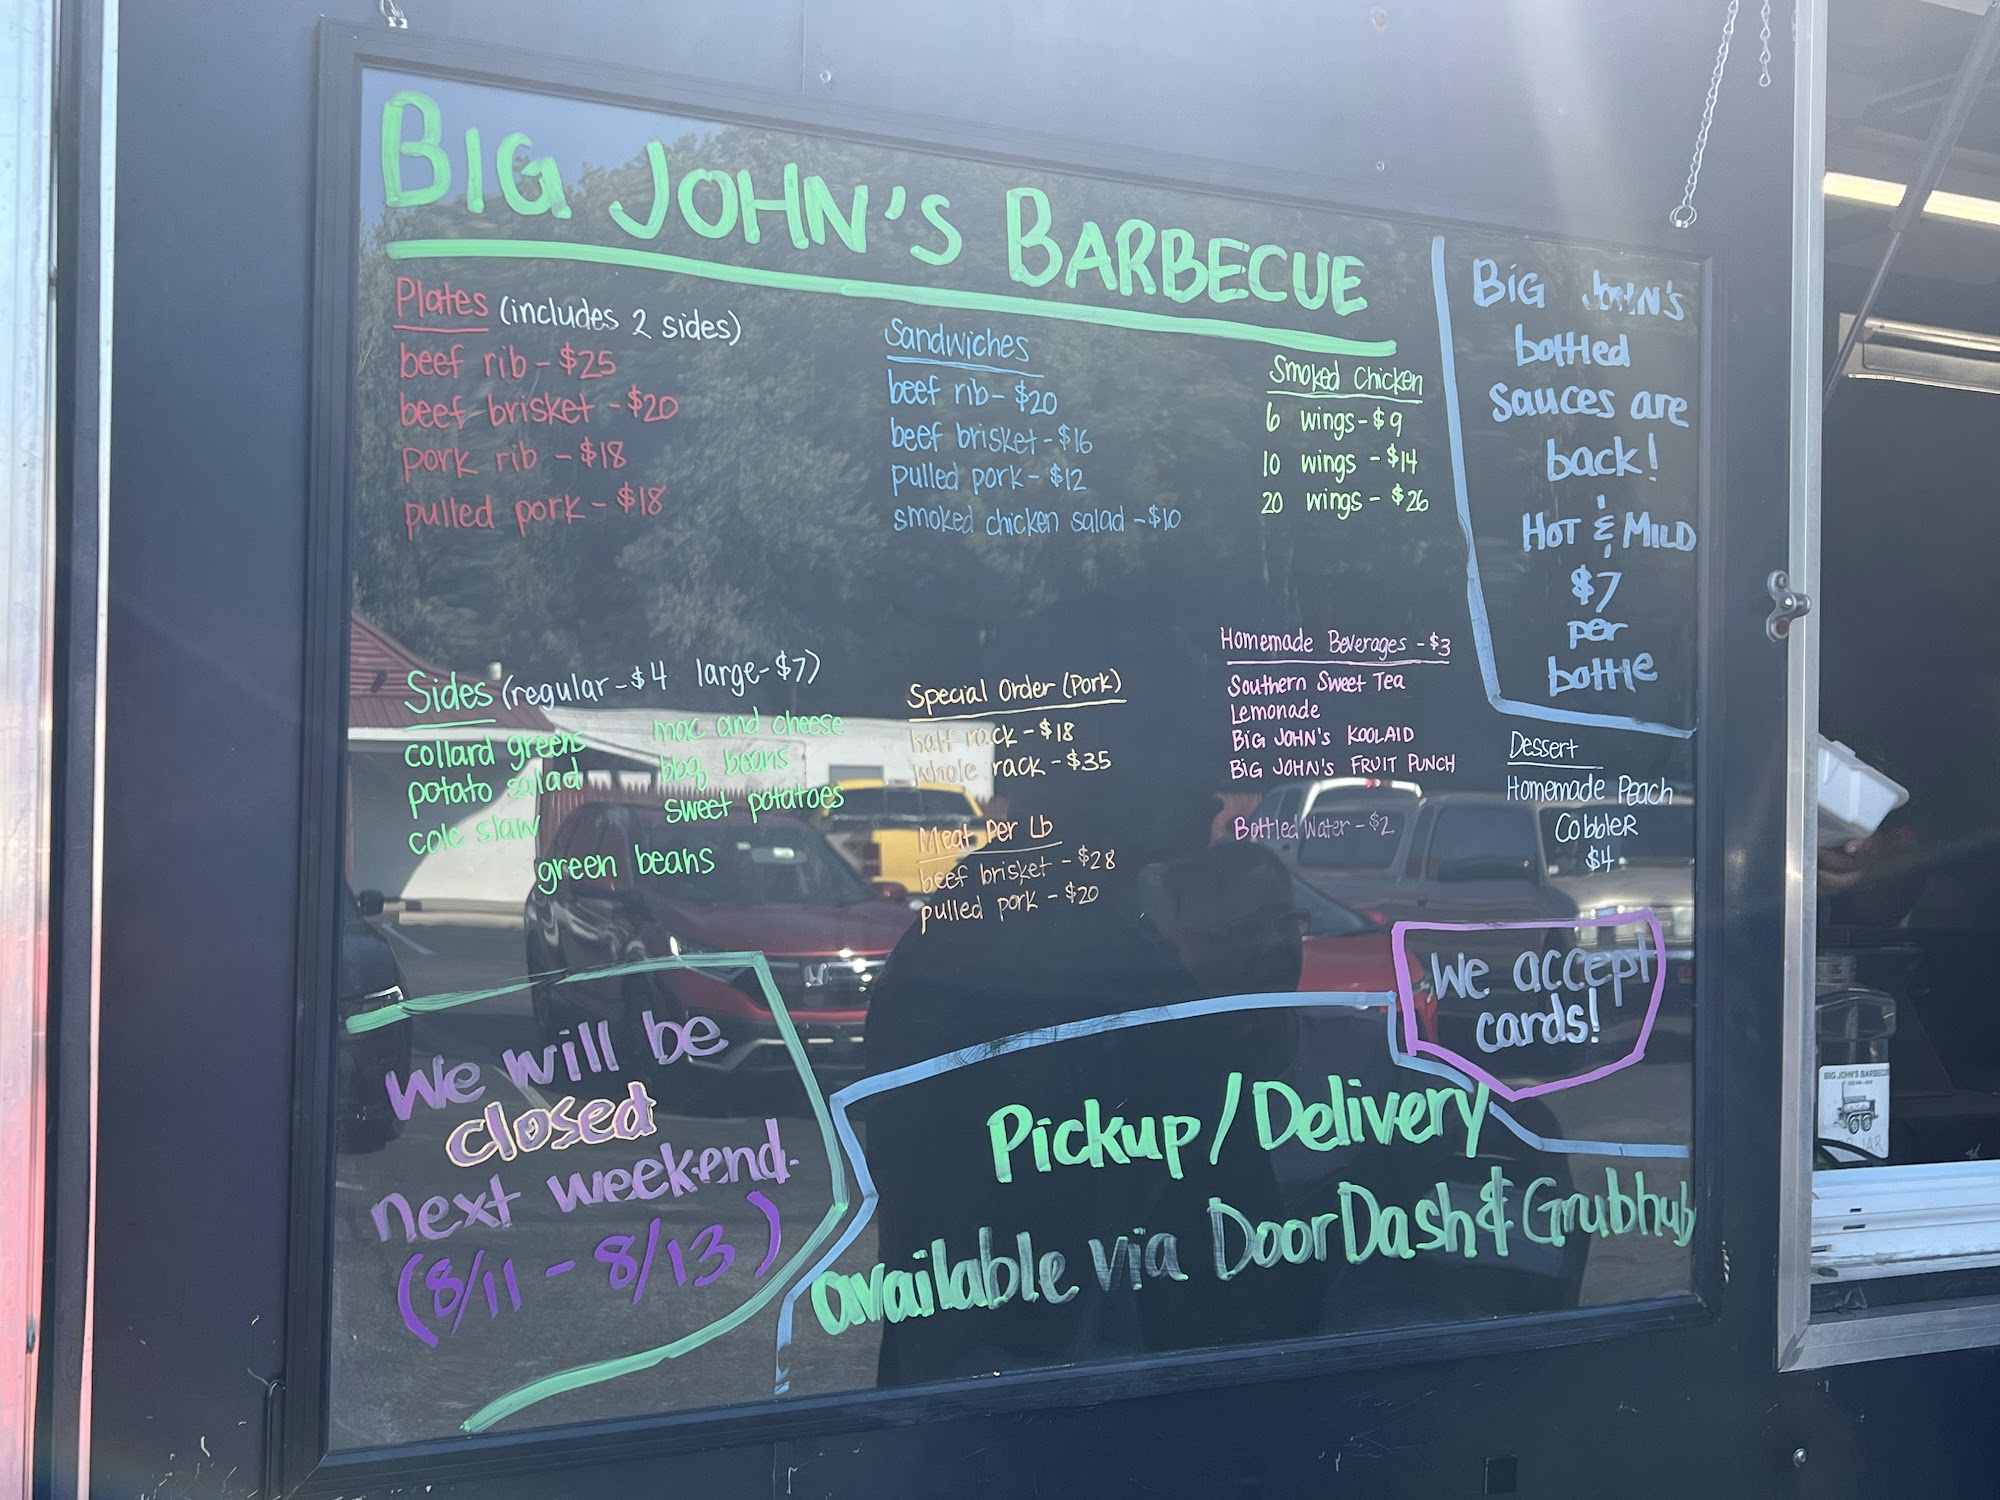 BIG JOHN'S BARBECUE
Plates (includes 2 sides)
beef rib - $25
beef brisket - $20
pork rib - $18
pulled pork - $18
Sandwiches
beef rib - $20
beef brisket - $16
pulled pork - $12
smoked chicken salad - $10
Smoked Chicken
6 wings - $9
10 wings - $14
20 wings - $26
BIG JOHN'S
bottled
sauces are
back!
HOT & MILD
$7
per
bottle
Sides (regular - $4 large - $7)
collard greens
potato salad
cole slaw
mac and cheese
bbq beans
sweet potatoes
green beans
Special Order (Pork)
half rack - $18
whole rack - $35
Meat Per Lb
beef brisket - $28
pulled pork - $20
Homemade Beverages - $3
Southern Sweet Tea
Lemonade
BIG JOHN'S KOOLAID
BIG JOHN'S FRUIT PUNCH
Bottled Water - $2
Dessert
Homemade Peach
Cobbler
$4
We will be
closed
next weekend.
(8/11 - 8/13)
We accept
cards!
Pickup/Delivery
available via DoorDash & Grubhub
BIG JOHN'S BARBECUE